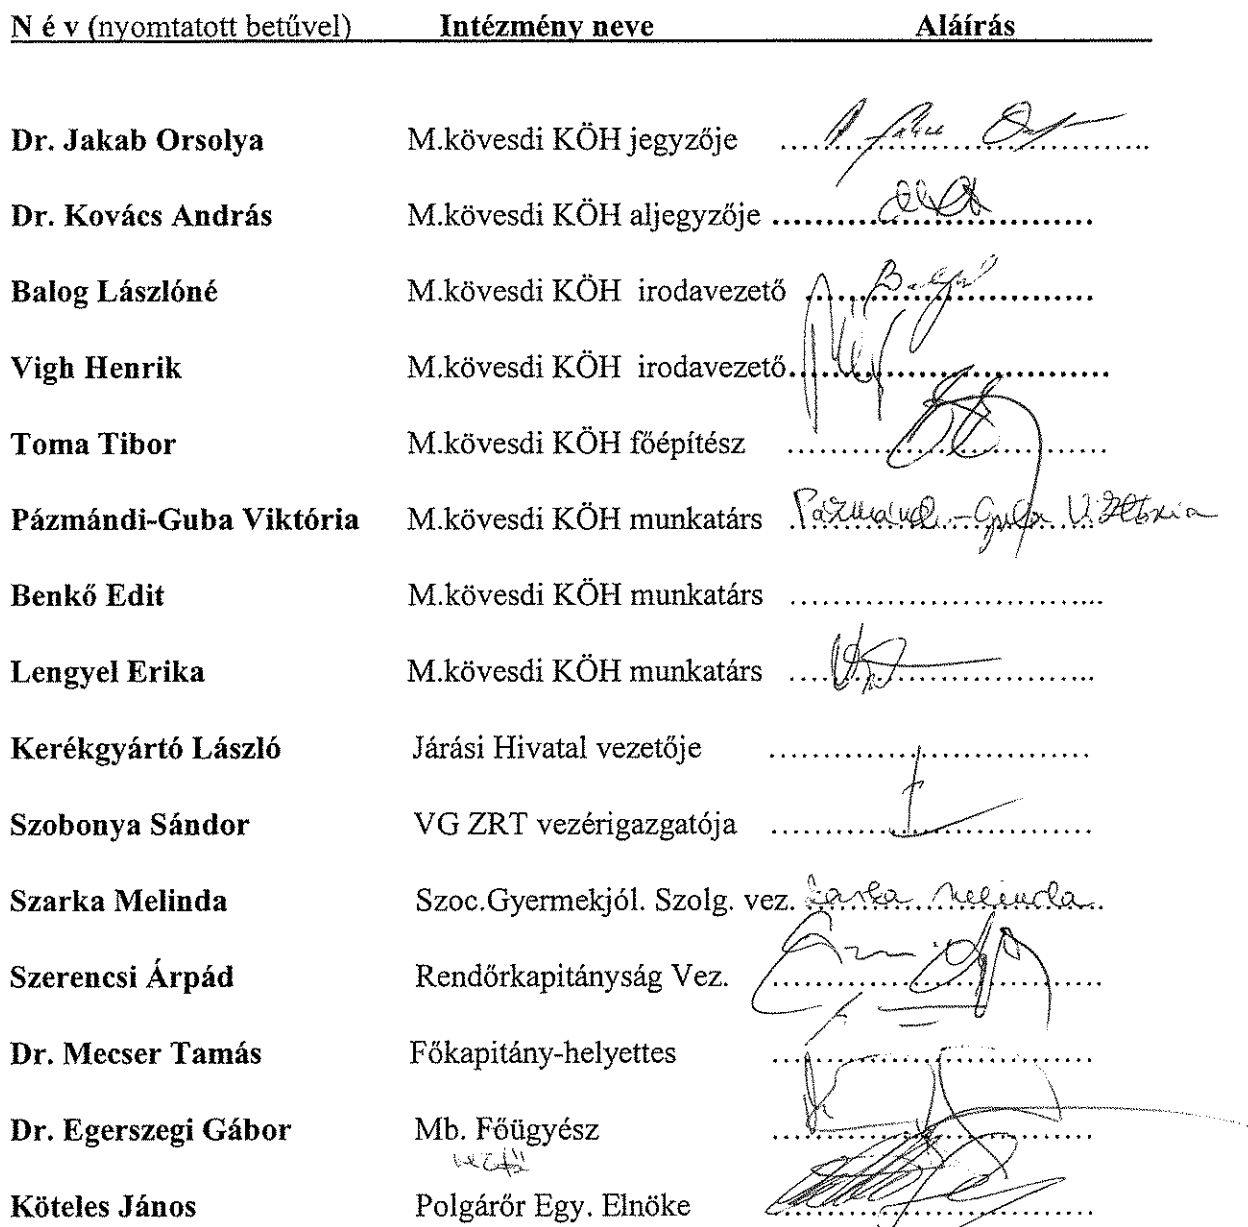 N é v (nyomtatott betűvel) Intézmény neve Aláírás
Dr. Jakab Orsolya M.kövesdi KÖH jegyzője ....................................
Dr. Kovács András M.kövesdi KÖH aljegyzője ....................................
Balog Lászlóné M.kövesdi KÖH irodavezető ....................................
Vigh Henrik M.kövesdi KÖH irodavezető ....................................
Toma Tibor M.kövesdi KÖH főépítész ....................................
Pázmándi-Guba Viktória M.kövesdi KÖH munkatárs Pázmándi-Guba Viktória
Benkő Edit M.kövesdi KÖH munkatárs ....................................
Lengyel Erika M.kövesdi KÖH munkatárs ....................................
Kerékgyártó László Járási Hivatal vezetője ....................................
Szobonya Sándor VG ZRT vezérigazgatója ....................................
Szarka Melinda Szoc.Gyermekjól. Szolg. vez. Szarka Melinda
Szerencsi Árpád Rendőrkapitányság Vez. ....................................
Dr. Mecser Tamás Főkapitány-helyettes ....................................
Dr. Egerszegi Gábor Mb. Főügyész ....................................
Köteles János Polgárőr Egy. Elnöke ....................................